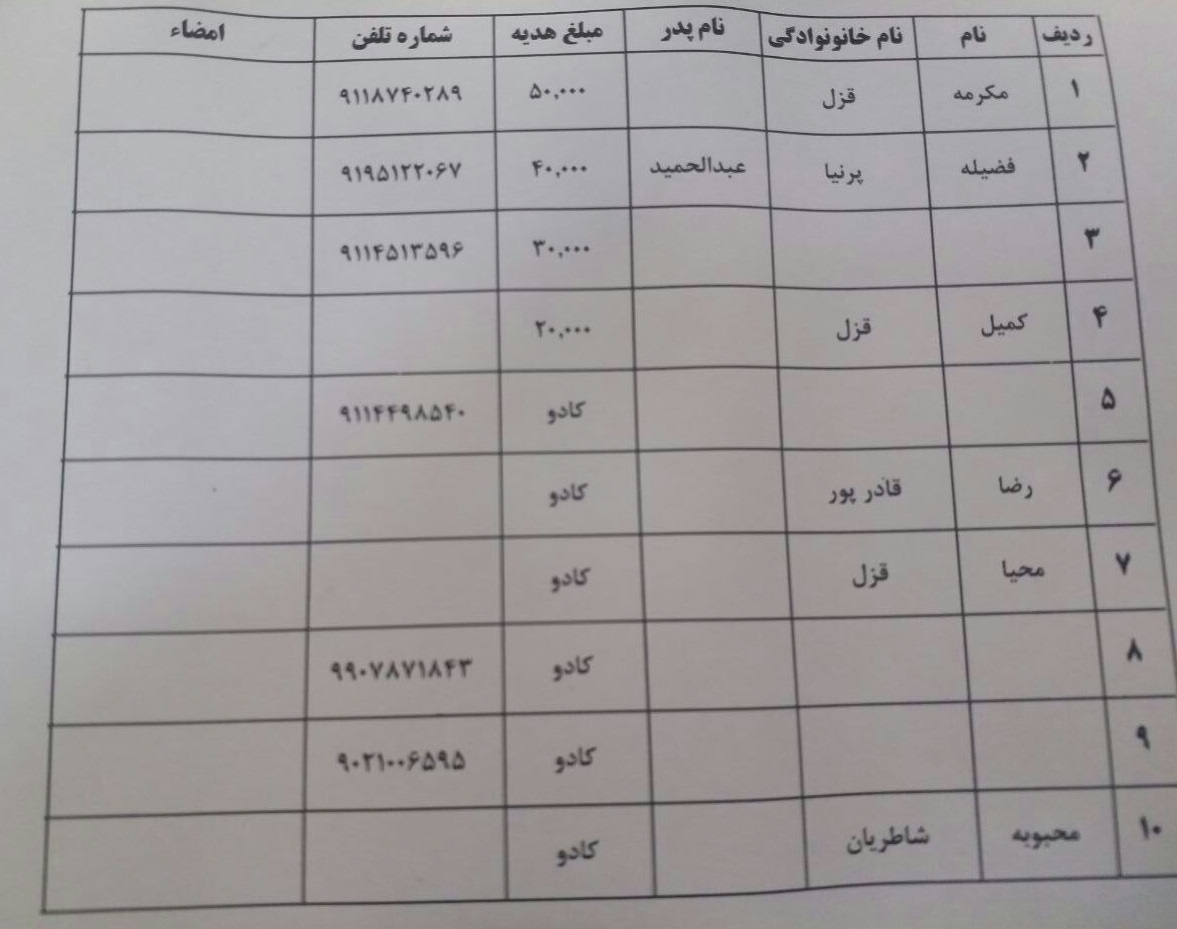 ردیف نام نام خانونوادگی نام پدر مبلغ هدیه شماره تلفن امضاء
۱ مکرمه قزل ۵۰,۰۰۰ ۹۱۱۸۷۴۰۲۸۹
۲ فضیله پرنیا عبدالحمید ۴۰,۰۰۰ ۹۱۹۵۱۲۲۰۶۷
۳ ۳۰,۰۰۰ ۹۱۱۴۵۱۳۵۹۶
۴ کمیل قزل ۲۰,۰۰۰
۵ کادو ۹۱۱۴۴۹۸۵۴۰
۶ رضا قادر پور کادو
۷ محیا قزل کادو
۸ کادو ۹۹۰۷۸۷۱۸۴۳
۹ کادو ۹۰۲۱۰۰۶۵۹۵
۱۰ محبوبه شاطریان کادو